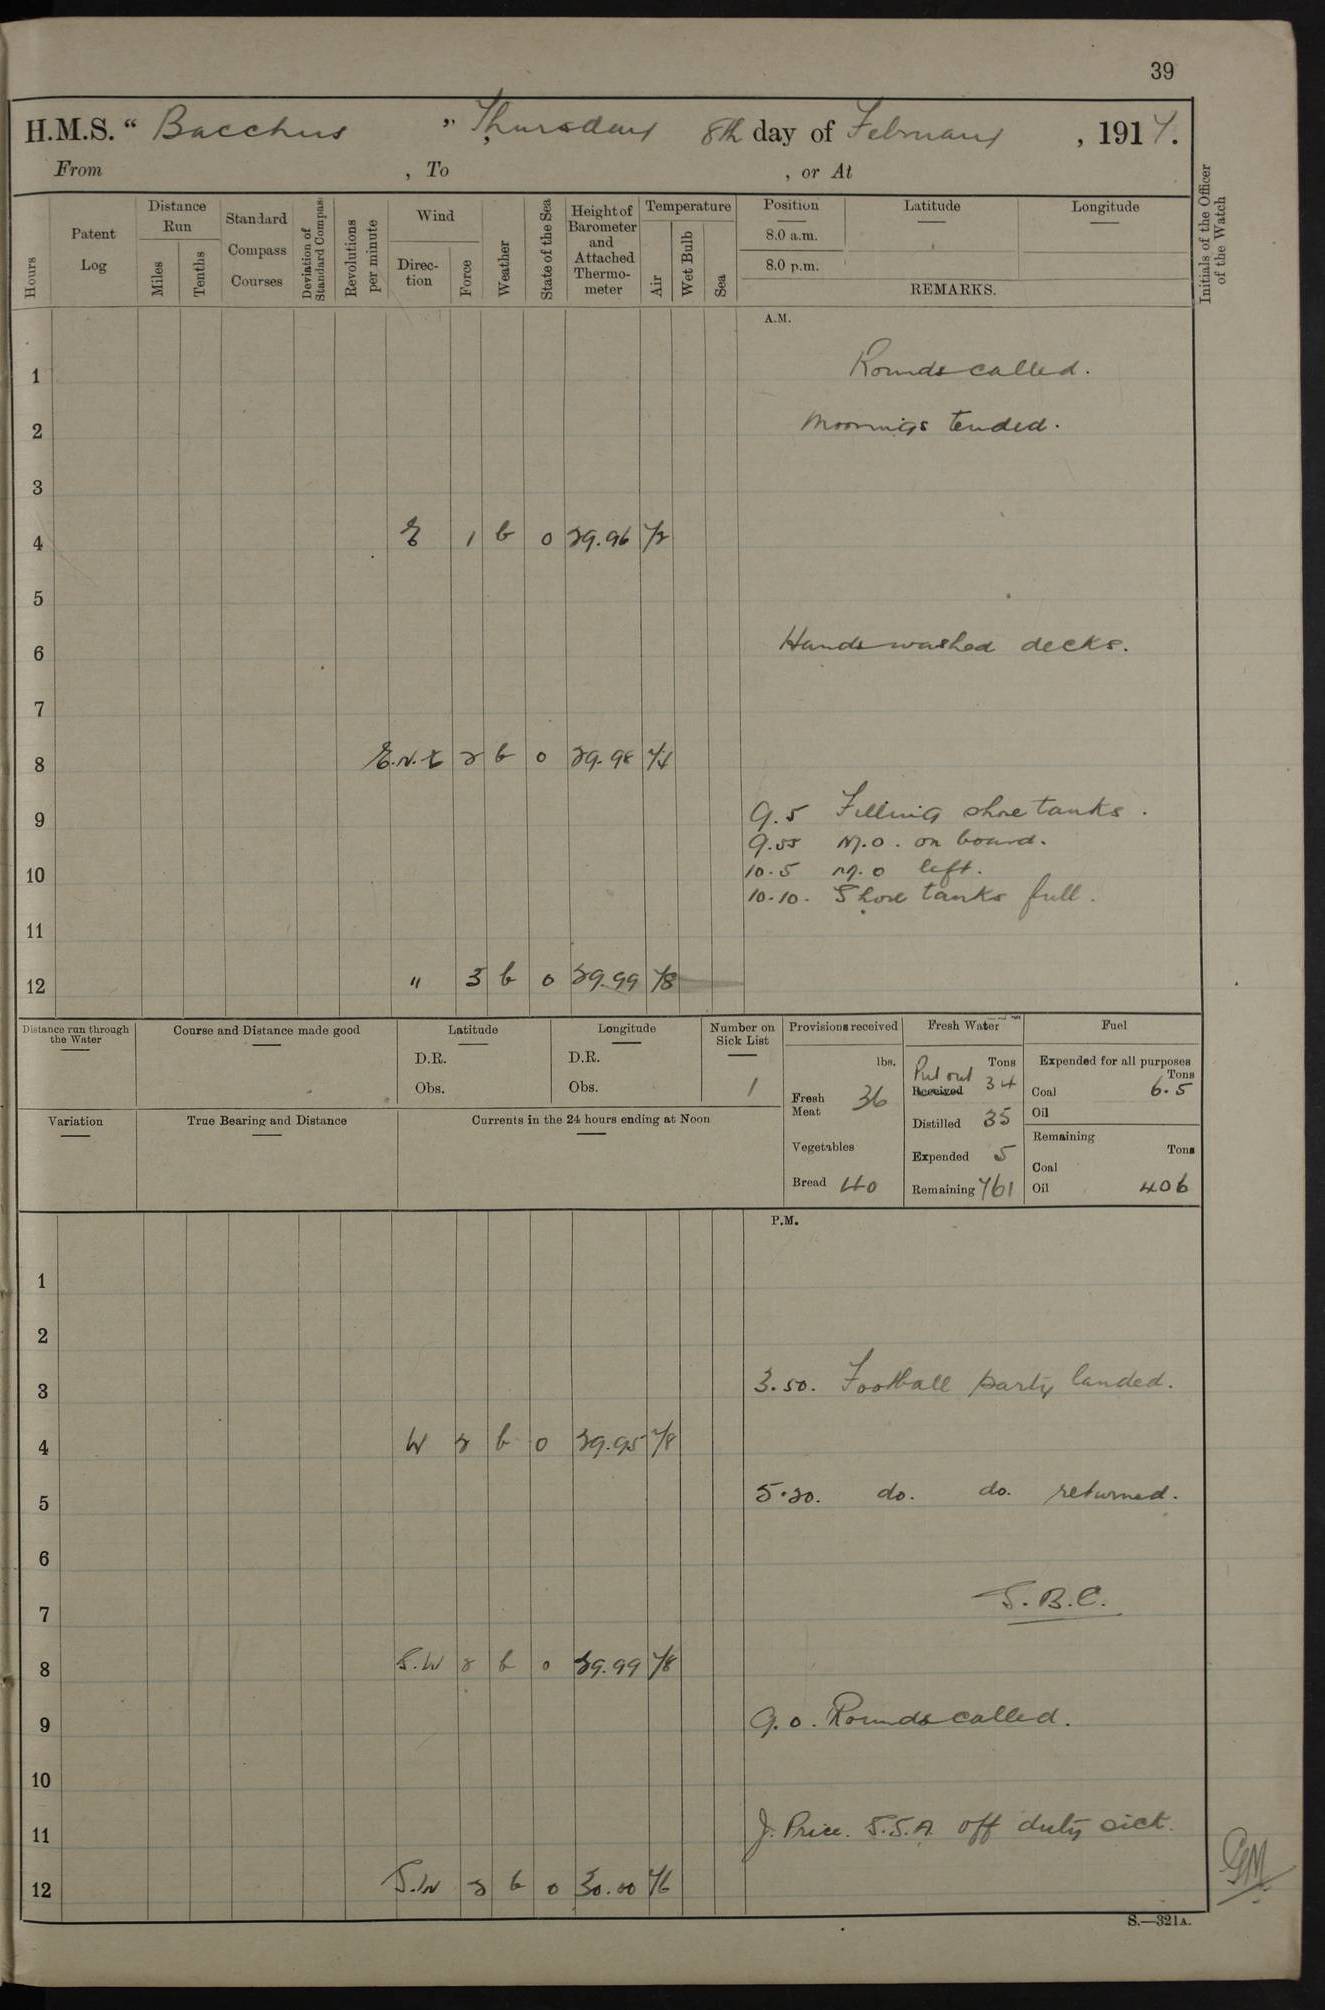 39
H.M.S. " Bacchus " Thursday 8th day of February , 1917.
From , To , or At
Hours
Patent Log
Distance Run
Miles
Tenths
Standard Compass Courses
Deviation of Standard Compass
Revolutions per minute
Wind
Direction
Force
Weather
State of the Sea
Height of Barometer and Attached Thermometer
Temperature
Air
Wet Bulb
Sea
Position
8.0 a.m.
8.0 p.m.
Latitude
Longitude
REMARKS.
Initials of the Officer of the Watch
A.M.
1 Rounds called.
2 Moorings tended.
3
4 E 1 b 0 29.96 72
5
6 Hands washed decks.
7
8 E.N.E 2 b 0 29.98 74
9 9.5 Filling shore tanks.
9.55 M.O. on board.
10 10.5 M.O left.
10.10. Shore tanks full.
11
12 " 3 b 0 29.99 78
Distance run through the Water
Course and Distance made good
Latitude
D.R.
Obs.
Longitude
D.R.
Obs.
Number on Sick List
1
Provisions received
lbs.
Fresh Meat 36
Vegetables
Bread 40
Fresh Water
Tons
Put out
Received 34
Distilled 35
Expended 5
Remaining 761
Fuel
Expended for all purposes
Tons
Coal 6.5
Oil
Remaining
Tons
Coal
Oil 406
Variation
True Bearing and Distance
Currents in the 24 hours ending at Noon
P.M.
1
2
3 3.50. Football party landed.
4 W 2 b 0 29.95 78
5 5.20. do. do. returned.
6
7 S.B.C.
8 S.W 2 b 0 29.99 78
9 9.0. Rounds called.
10
11 J. Price. S.S.A. off duty sick.
12 S.W 2 b 0 30.00 76
GM
S.—321A.